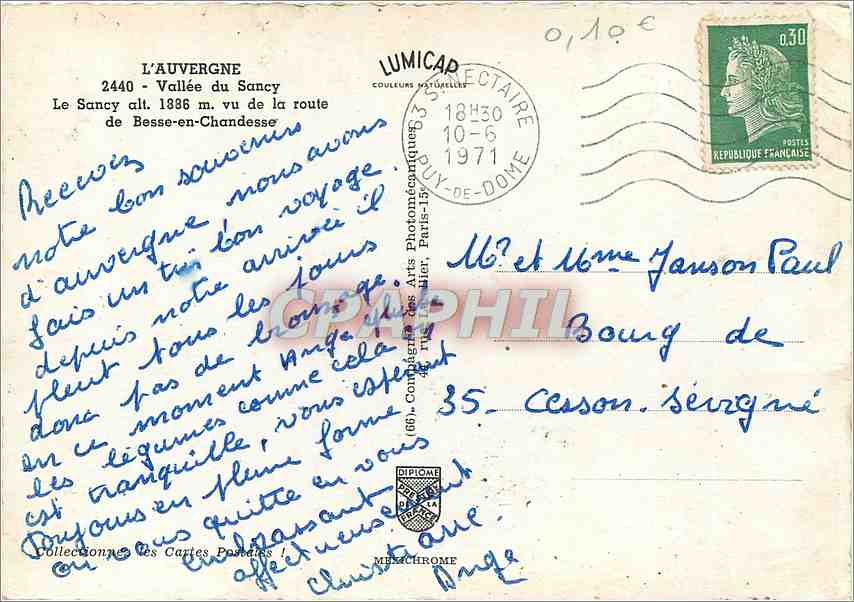 0,10€
L'AUVERGNE
2440 - Vallée du Sancy
Le Sancy alt. 1886 m. vu de la route
de Besse-en-Chandesse
LUMICAP
COULEURS NATURELLES
63 ST NECTAIRE
18H30
10-6
1971
PUY-DE-DOME
0,30
POSTES
REPUBLIQUE FRANÇAISE
Recevez
notre bon souvenirs
d'auvergne nous avons
fais un très bon voyage.
depuis notre arrivée il
pleut tous les jours
donc pas de bronzage.
en ce moment Ange
les légumes comme cela il
est tranquille, vous espérant
toujours en pleine forme
on vous quitte en vous
embrassant
affectueusement
Christiane.
Ange
Mr et Mme Janson Paul
Bourg de
35 - Cesson-Sévigné
(66) Compagnie des Arts Photomécaniques
rue Paris-15e
CPAPHIL
DIPLOME
PRESTIGE
DE LA
FRANCE
Collectionnez les Cartes Postales !
MEXICHROME